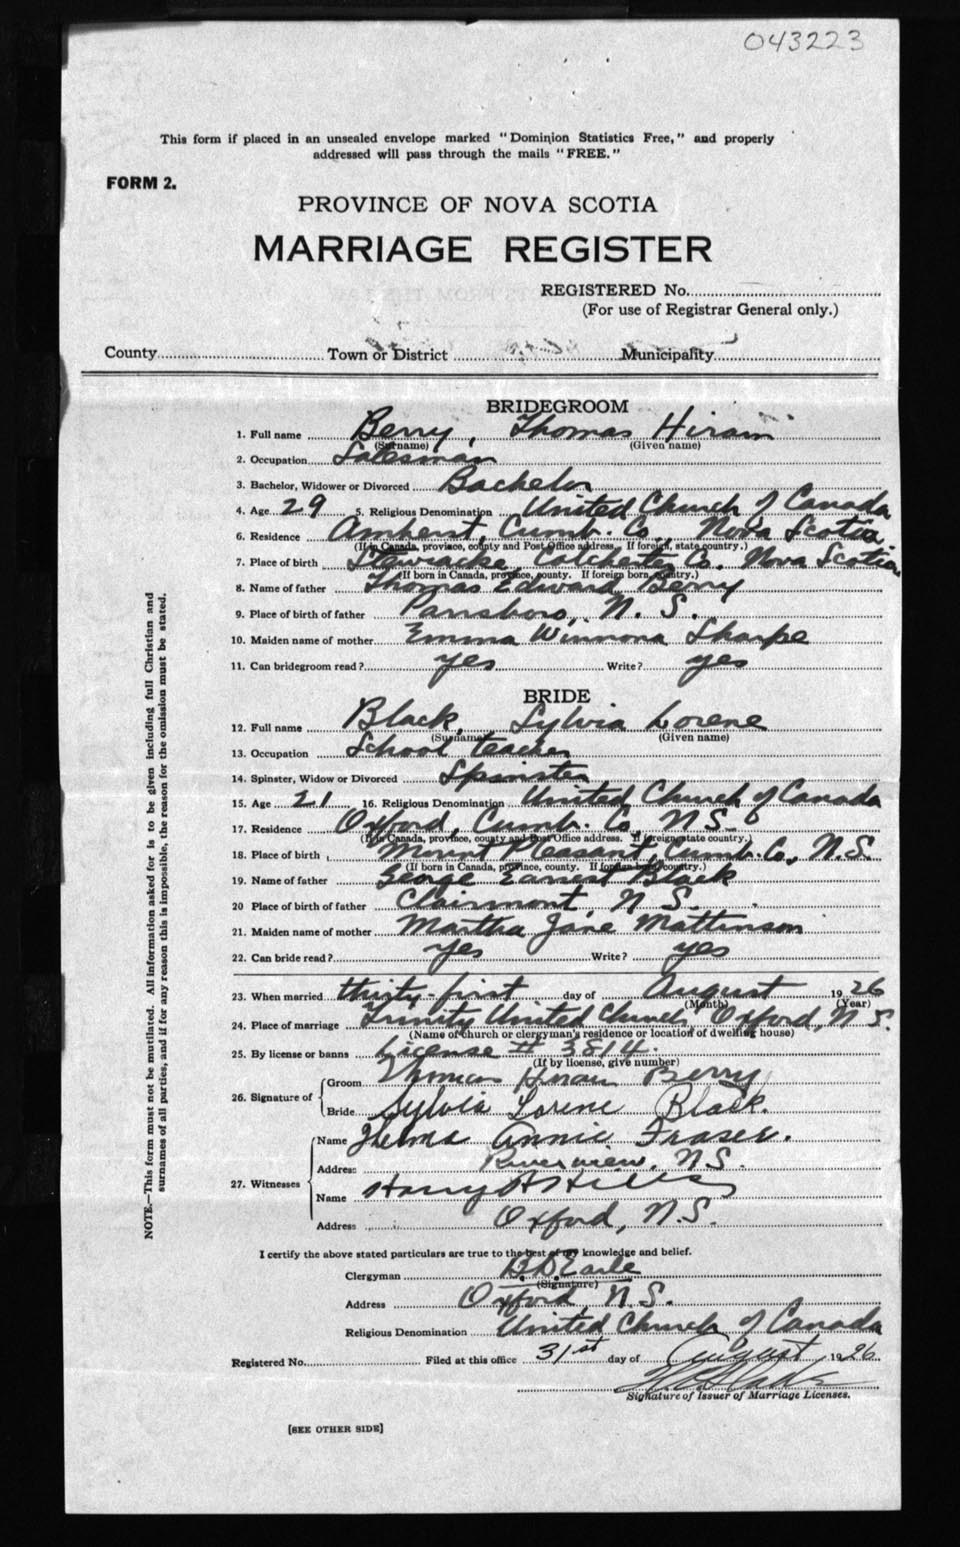 043223
This form if placed in an unsealed envelope marked "Dominion Statistics Free," and properly
addressed will pass through the mails "FREE."
FORM 2.
PROVINCE OF NOVA SCOTIA
MARRIAGE REGISTER
REGISTERED No.
(For use of Registrar General only.)
County Town or District Municipality
BRIDEGROOM
1. Full name Berry, Thomas Hiram
(Surname) (Given name)
2. Occupation Salesman
3. Bachelor, Widower or Divorced Bachelor
4. Age 29 5. Religious Denomination United Church of Canada
6. Residence Amherst, Cumb. Co., Nova Scotia
(If in Canada, province, county and Post Office address. If foreign, state country.)
7. Place of birth Stewiacke, Colchester Co. Nova Scotia
(If born in Canada, province, county. If foreign born, country.)
8. Name of father Thomas Edward Berry
9. Place of birth of father Parrsboro, N. S.
10. Maiden name of mother Emma Winnona Sharpe
11. Can bridegroom read? yes Write? yes
BRIDE
12. Full name Black, Sylvia Lorene
(Surname) (Given name)
13. Occupation School teacher
14. Spinster, Widow or Divorced Spinster
15. Age 21 16. Religious Denomination United Church of Canada
17. Residence Oxford, Cumb. Co, N.S.
(If in Canada, province, county and Post Office address. If foreign state country.)
18. Place of birth Mount Pleasant, Cumb. Co., N.S.
(If born in Canada, province, county. If foreign born, country.)
19. Name of father George Earnest Black
20 Place of birth of father Clairmont, N.S.
21. Maiden name of mother Martha Jane Mattinson
22. Can bride read? yes Write? yes
23. When married thirty-first day of August 1926
(Month) (Year)
24. Place of marriage Trinity United Church, Oxford, N.S.
(Name of church or clergyman's residence or location of dwelling house)
25. By license or banns License # 3814.
(If by license, give number)
26. Signature of
Groom Thomas Hiram Berry
Bride Sylvia Lorene Black.
27. Witnesses
Name Thelma Annie Fraser.
Address Riverview, N.S.
Name Harry
Address Oxford, N.S.
I certify the above stated particulars are true to the best of my knowledge and belief.
Clergyman B.D. Earle
(Signature)
Address Oxford N.S.
Religious Denomination United Church of Canada
Registered No. Filed at this office 31st day of August 1926.
Signature of Issuer of Marriage Licenses.
[SEE OTHER SIDE]
NOTE.—This form must not be mutilated. All information asked for is to be given including full Christian and
surnames of all parties, and if for any reason this is impossible, the reason for the omission must be stated.